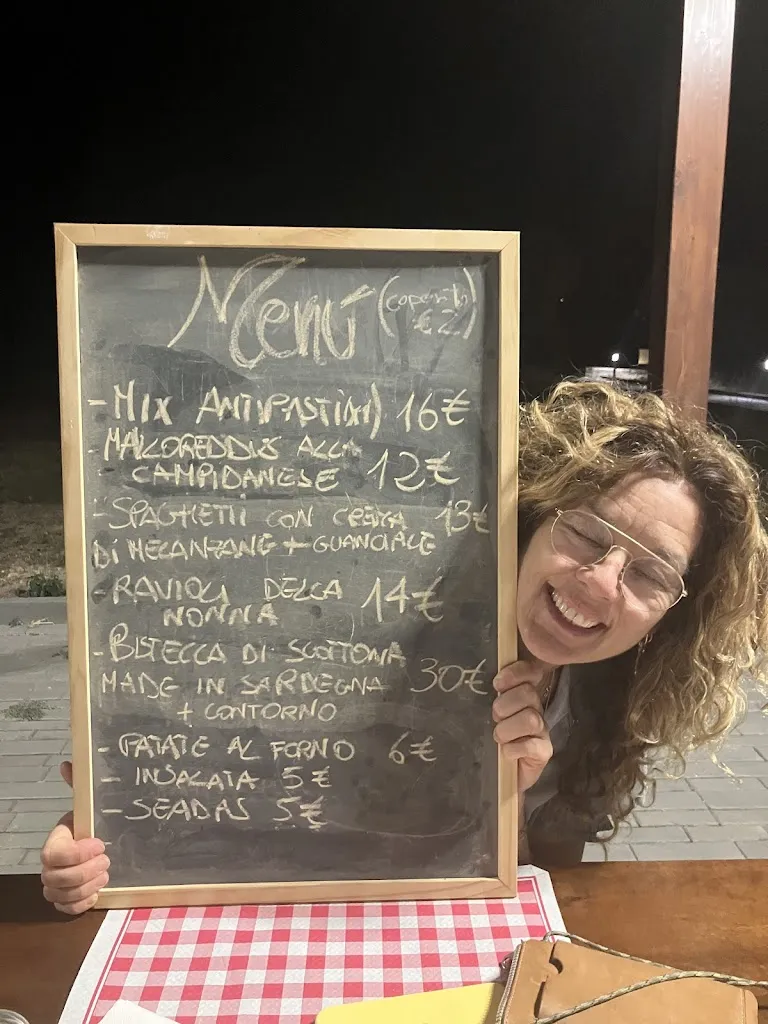 Menú (coperto
€ 2)
- MIX ANTIPASTI(X1) 16€
- MALLOREDDUS ALLA
CAMPIDANESE 12€
- SPAGHETTI CON CREMA 13€
DI MELANZANE + GUANCIALE
- RAVIOLI DELLA
NONNA 14€
- BISTECCA DI SCOTTONA
MADE IN SARDEGNA 30€
+ CONTORNO
- PATATE AL FORNO 6€
- INSALATA 5€
- SEADAS 5€